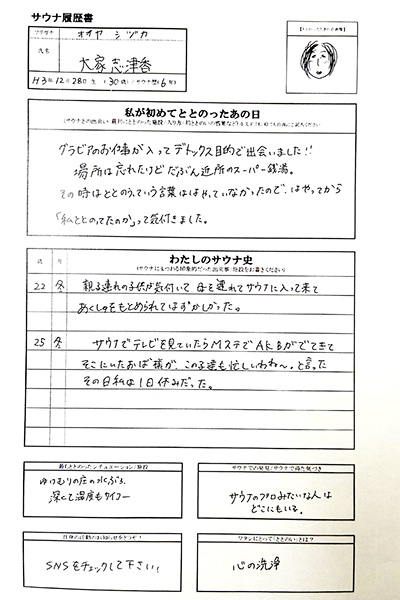 サウナ履歴書
フリガナ オオヤ シヅカ
氏名 大家志津香
H3年12月28日生 (30歳/サウナ歴6年)
私が初めてととのったあの日
グラビアのお仕事が入ってデトックス目的で出会いました!!
場所は忘れたけどたぶん近所のスーパー銭湯。
その時はととのうっていう言葉ははやっていなかったので、はやってから
「私ととのってたのか」って気付きました。
わたしのサウナ史
歳 月
22 冬 親子連れの子供が気付いて 母を連れてサウナに入って来て
あくしゅをもとめられてはずかしかった。
25 冬 サウナでテレビを見ていたらMステでAKBがでてきて
そこにいたおば様が、この子達も忙しいわね〜。と言った
その日私は1日休みだった。
最もととのったシチュエーション/施設
ゆけむりの庄の水ぶろ。
深くて温度もサイコー
サウナでの発見/サウナで得た気づき
サウナのプロみたいな人は
どこにもいる。
SNSをチェックして下さい!
ワタシにとって「ととのい」とは?
心の洗浄